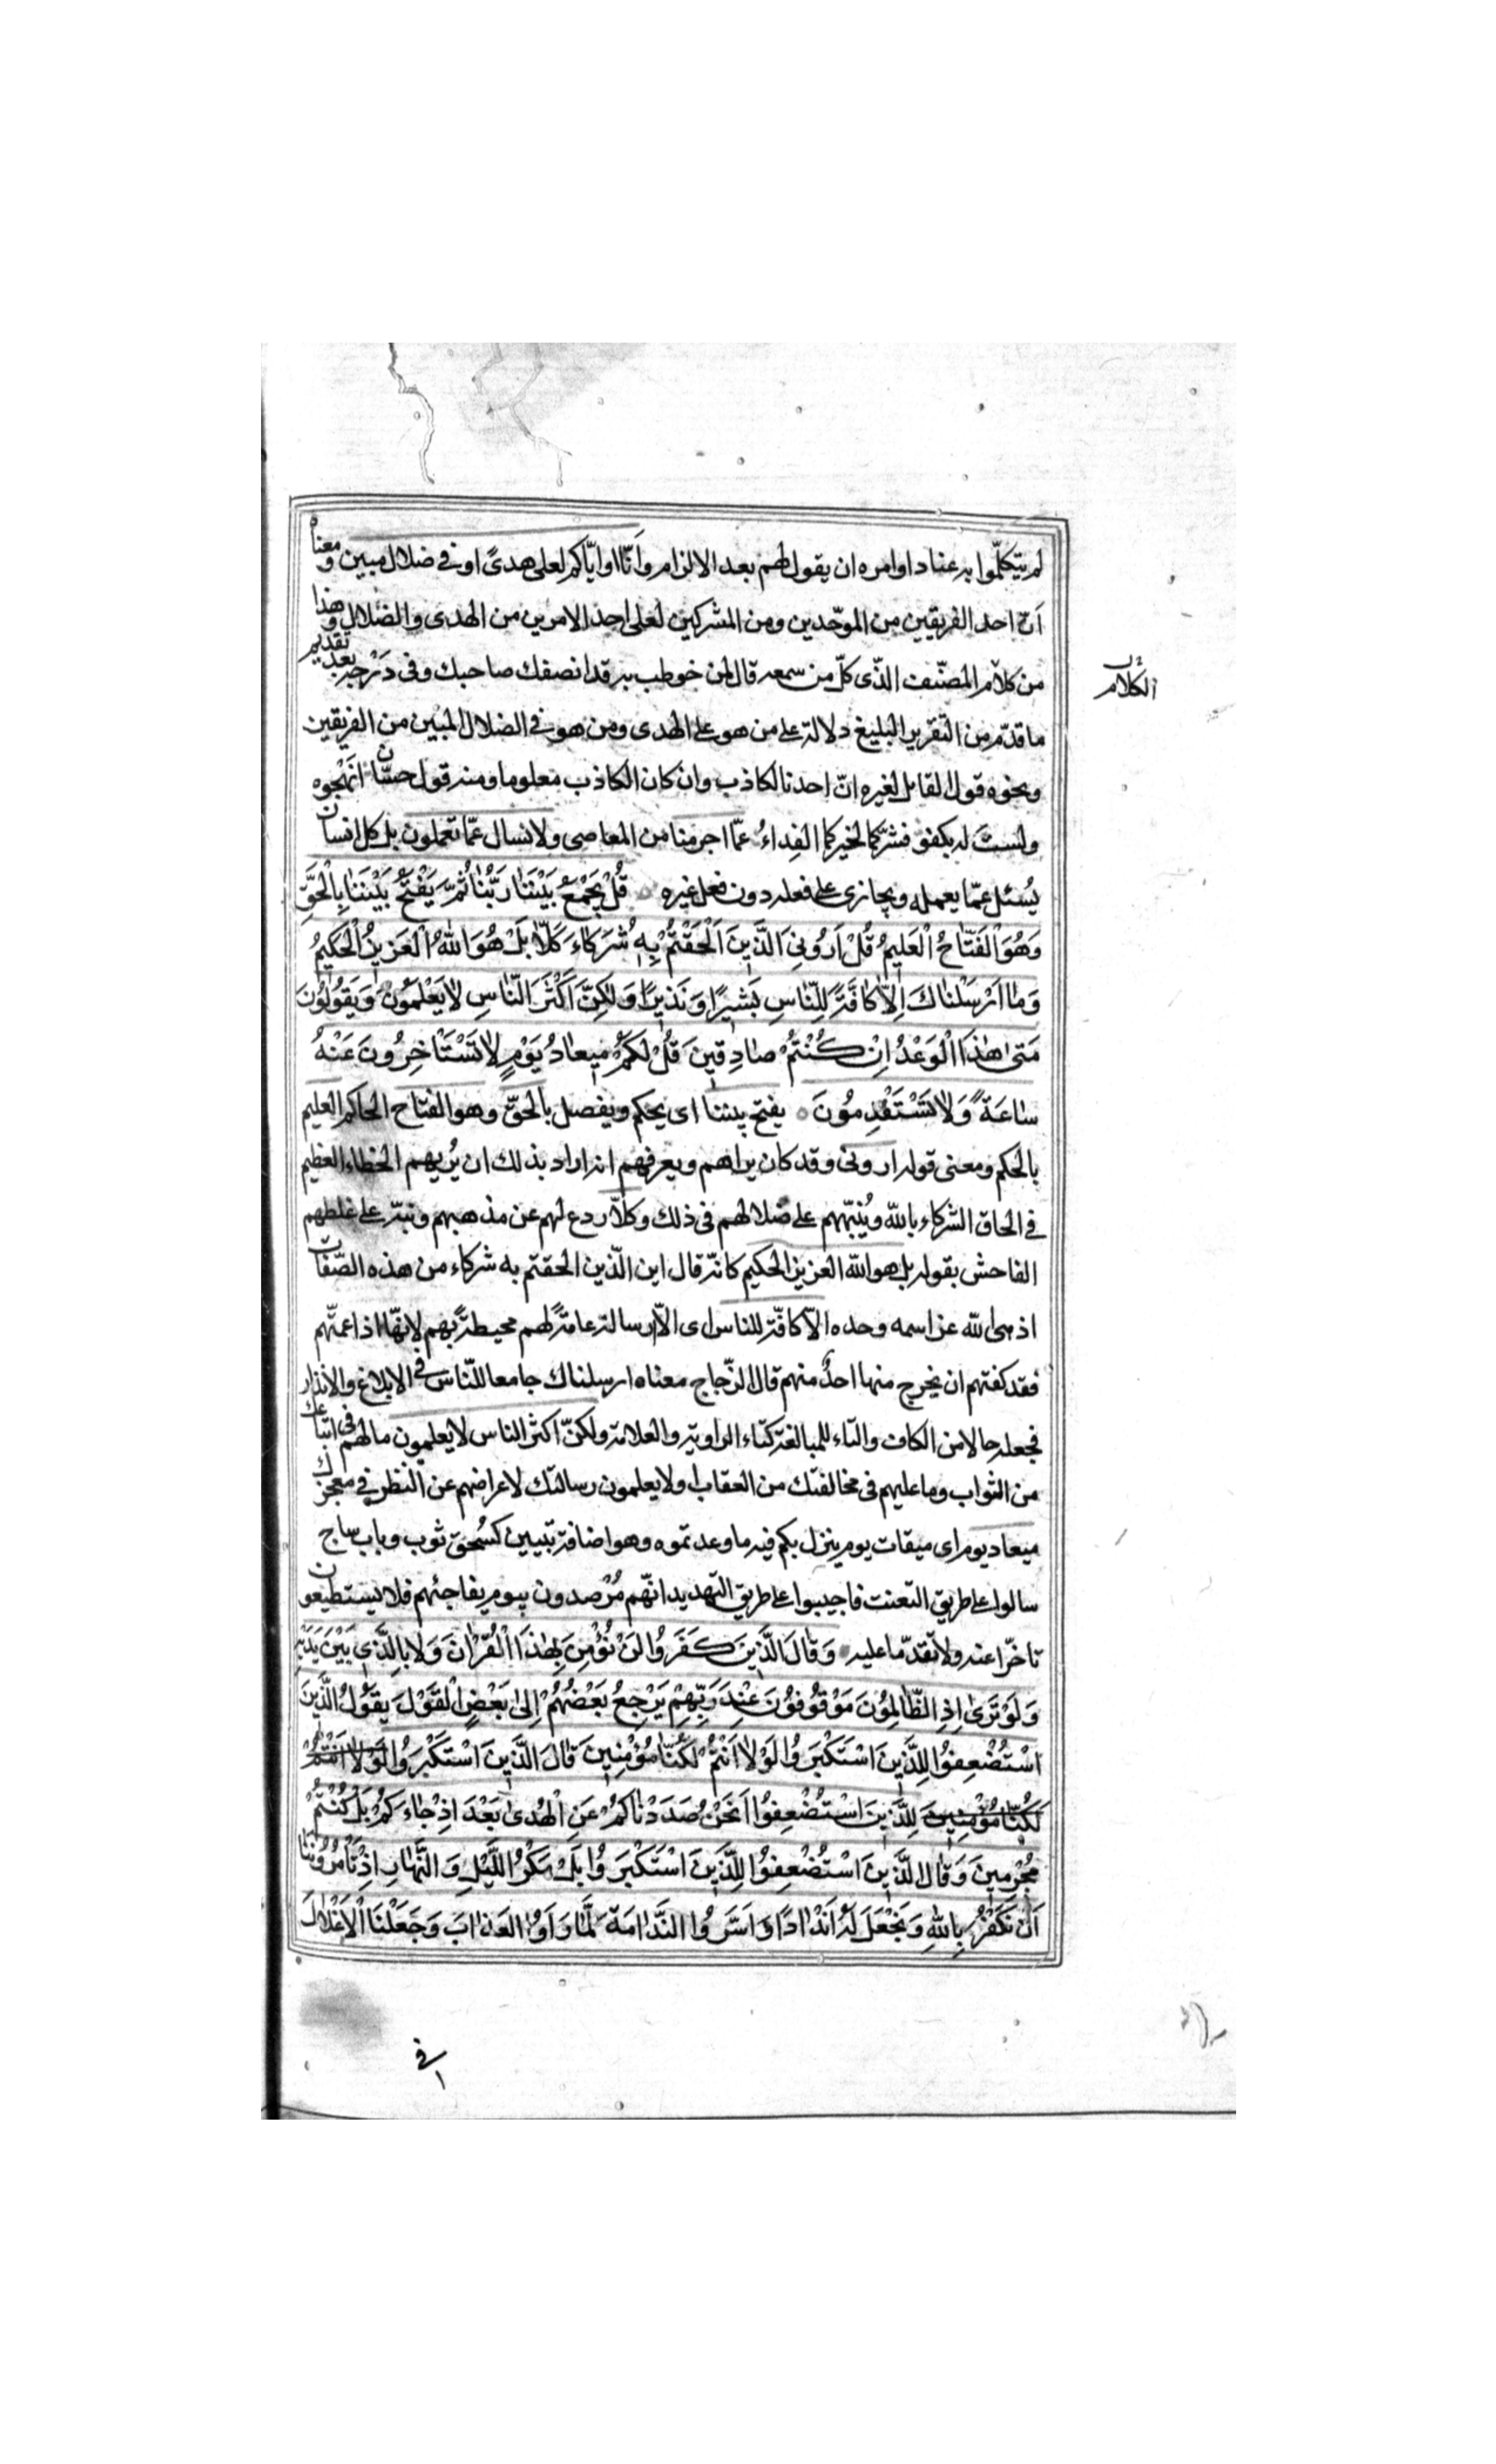 لم يتكلّموا به عنادا وامره ان يقول لهم بعد الالزام وَانّا او ايّاكم لعلى هدىً او فى ضلال مبين ومعناه
اَنّ احد الفريقين من الموحّدين ومن المشركين لعلى احد الامرين من الهدى والضلال وهذا
من كلام المصنّف الذّى كلّ من سمعه قال لمن خوطب به قد انصفك صاحبك وفى دَرْجه بعد تقديم
الكلام
ما قدّم من التقرير البليغ دلالة على من هو على الهدى ومن هو فى الضلال المبين من الفريقين
ونحوه قول القايل لغيره انّ احدنا لكاذب وان كان الكاذب معلوما ومنه قول حسّان اتهجوه
ولستَ له بكفؤ فشرّكما لخيركما الفِداءُ عمّا اجرمنا من المعاصى ولا نسال عمّا تعملون بل كل انسان
يُسئل عمّا يعمله ويجازى على فعله دون فعل غيره قُلْ يَجْمَعُ بَيْنَنٰا رَبُّنٰا ثُمَّ يَفْتَحُ بَيْنَنٰا بِالْحَقِّ
وَهُوَ الْفَتّٰاحُ الْعَلِيمُ قُلْ اَرُونِىَ الَّذِينَ اَلْحَقْتُمْ بِهِ شُرَكٰاءَ كَلّٰا بَلْ هُوَ اللّٰهُ الْعَزِيزُ الْحَكِيمُ
وَمٰا اَرْسَلْنٰاكَ اِلّٰا كٰافَّةً لِلنّٰاسِ بَشِيرًا وَنَذِيرًا وَلٰكِنَّ اَكْثَرَ النّٰاسِ لٰا يَعْلَمُونَ وَيَقُولُونَ
مَتىٰ هٰذَا الْوَعْدُ اِنْ كُنْتُمْ صٰادِقِينَ قُلْ لَكُمْ مِيعٰادُ يَوْمٍ لٰا تَسْتَاْخِرُونَ عَنْهُ
سٰاعَةً وَلٰا تَسْتَقْدِمُونَ يفتح بيننا اى يحكم ويفصل بالحقّ وهو الفتاح الحاكم العليم
بالحكم ومعنى قوله ارونى وقد كان يراهم ويعرفهم انه اراد بذلك ان يُريهم الخطاء العظيم
فى الحاق الشركاء بالله ويُنبّههم على ضلالهم فى ذلك وكلّا ردع لهم عن مذهبهم ونبّه على غلطهم
الفاحش بقوله بل هو الله العزيز الحكيم كانّه قال اين الّذين الحقتم به شركاء من هذه الصّفات
اذ هى لله عز اسمه وحده الّا كافّة للناس اى الّا رسالة عامّةً لهم محيطةً بهم لانّها اذا عمّتهم
فقد كفتهم ان يخرج منها احدٌ منهم قال الزّجاج معناه ارسلناك جامعا للنّاس فى الابلاغ والانذار
فجعله حالا من الكاف والتاء للمبالغة كتاء الراوية والعلامة ولكنّ اكثر الناس لا يعلمون ما لهم فى اتباعك
من الثواب وما عليهم فى مخالفتك من العقاب ولا يعلمون رسالتك لاعراضهم عن النظر فى معجزك
ميعاد يوم اى ميقات يوم ينزل بكم فيه ما وعدتموه وهو اضافة تبيين كسُحق ثوب وباب ساج
سالوا على طريق التعنت فاجيبوا على طريق التهديد انّهم مُرْصدون بيوم يفاجئهم فلا يستطيعون
تاخّرا عنه ولا تقدّما عليه وَقٰالَ الَّذِينَ كَفَرُوا لَنْ نُؤْمِنَ بِهٰذَا الْقُرْاٰنِ وَلٰا بِالَّذِى بَيْنَ يَدَيْهِ
وَلَوْ تَرىٰ اِذِ الظّٰالِمُونَ مَوْقُوفُونَ عِنْدَ رَبِّهِمْ يَرْجِعُ بَعْضُهُمْ اِلىٰ بَعْضٍ الْقَوْلَ يَقُولُ الَّذِينَ
اسْتُضْعِفُوا لِلَّذِينَ اسْتَكْبَرُوا لَوْلٰا اَنْتُمْ لَكُنّٰا مُؤْمِنِينَ قٰالَ الَّذِينَ اسْتَكْبَرُوا لَوْلٰا اَنْتُمْ
لَكُنّٰا مُؤْمِنِينَ لِلَّذِينَ اسْتُضْعِفُوا اَنَحْنُ صَدَدْنٰاكُمْ عَنِ الْهُدىٰ بَعْدَ اِذْ جٰاءَكُمْ بَلْ كُنْتُمْ
مُجْرِمِينَ وَقٰالَ الَّذِينَ اسْتُضْعِفُوا لِلَّذِينَ اسْتَكْبَرُوا بَلْ مَكْرُ اللَّيْلِ وَالنَّهٰارِ اِذْ تَاْمُرُونَنٰا
اَنْ نَكْفُرَ بِاللّٰهِ وَنَجْعَلَ لَهُ اَنْدٰادًا وَاَسَرُّوا النَّدٰامَةَ لَمّٰا رَاَوُا الْعَذٰابَ وَجَعَلْنَا الْاَغْلٰالَ
فى